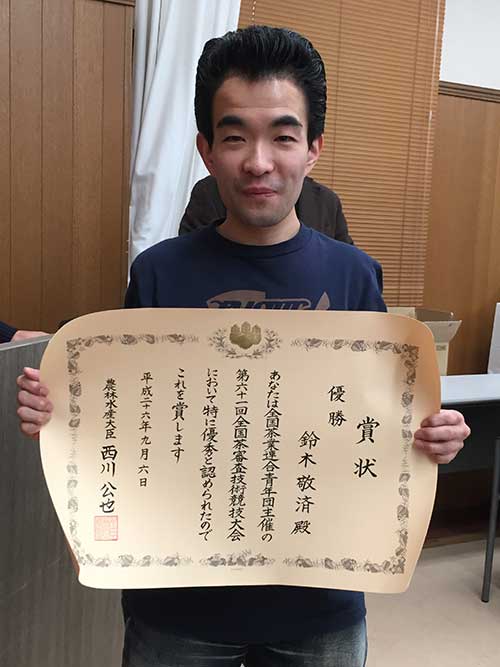 賞状
優勝
鈴木敬済殿
あなたは全国茶業連合青年団主催の
第六十一回全国茶審査技術競技大会
において特に優秀と認められたので
これを賞します
平成二十六年九月六日
農林水産大臣 西川公也